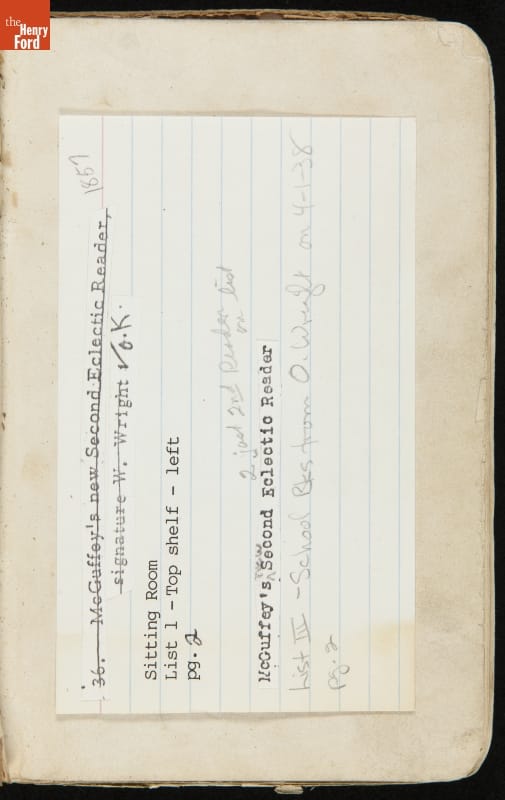 the
Henry
Ford
36. McGuffey's new Second Eclectic Reader, 1857
signature W. Wright ✓ O.K.
Sitting Room
List 1 - Top shelf - left
pg. 2
2 just 2nd Reader
on list
McGuffey's new Second Eclectic Reader
List III - School Bks from O. Wright on 4-1-38
pg. 2